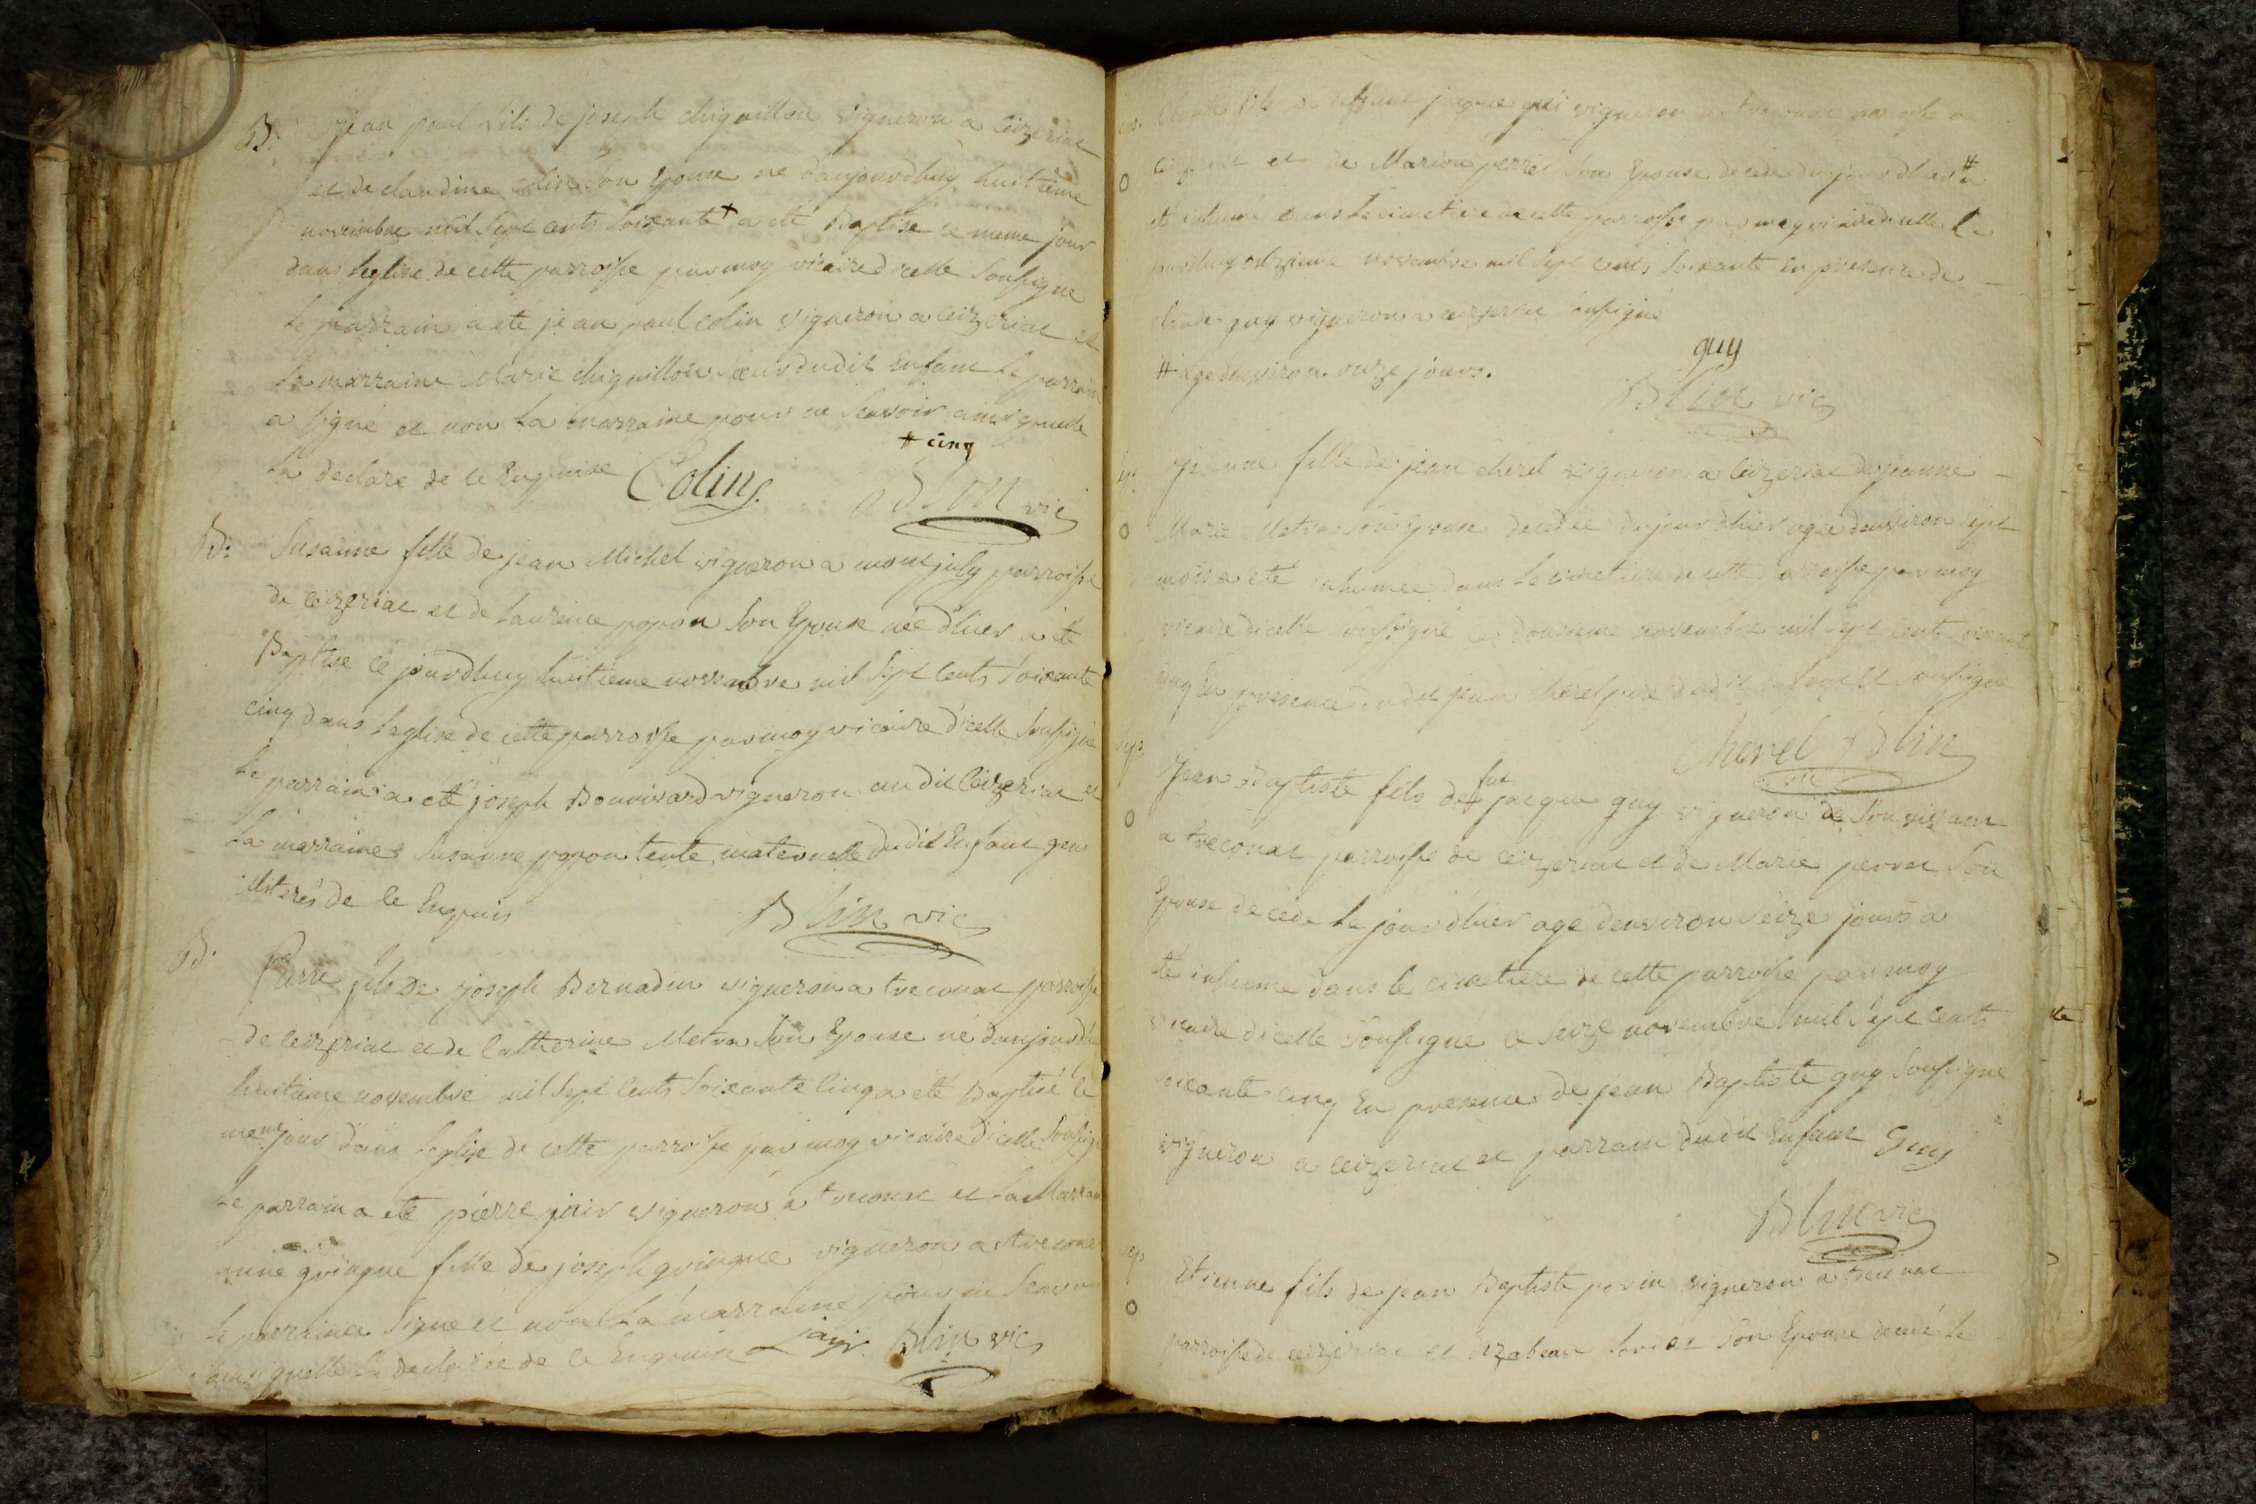 B. Jean paul fils de joseph chiguillon vigneron a Ceizeriat
et de claudine colin son Epouse né d'aujourdhuy huitieme
novembre mil sept cents soixante + a été Baptisé le meme jour
dans l'eglise de cette parroisse par moy vicaire d'icelle soussigné
le parrain a été jean paul colin vigneron a Ceizeriat et
la marraine Marie chiguillon soeur dudit Enfant le parrain
a signé et non la marraine pour ne scavoir ainsy quelle
+ cinq
la declaré de ce Enquise Colin
Blin vic
B: Susanne fille de jean Michel vigneron a montjuly parroisse
de ceizeriat et de Laurence popon son Epouse née d'hier a été
Baptisé ce jourdhuy huitieme novembre mil sept cents soixante
cinq dans l'eglise de cette parroisse par moy vicaire d'icelle soussigné
le parrain a été joseph Bouvivard vigneron au dit Ceizeriat et
la marraine Susanne popon tente maternelle dudit Enfant
illiterés de ce Enquis
Blin vic
B. Pierre fils de joseph Bernadin vigneron a treconat parroisse
de Ceizeriat et de Catherine Metra son Epouse né d'aujourd'h
huitieme novembre mil sept cents soixante cinq a été Baptisé le
meme jour dans l'eglise de cette parroisse par moy vicaire d'icelle
le parrain a été pierre jair vigneron a treconat et la Marraine
fille de joseph vigneron a
le parrain a signé et non la marraine pour ne scavoir
ainsi quelle la declarée de ce Enquise jair Blin vic
fils de deffunt jaque vigneron a
et de Marion perret son Epouse decedé du jour d'hier #
et inhumé dans le cimetiere de cette parroisse par moy vicaire d'icelle ce
jourdhuy onzieme novembre mil sept cents soixante en presence de
claude guy vigneron a ceizeriat soussigné
guy
# agé denviron onze jours.
Blin vic
Jeanne fille de jean cherel vigneron a Ceizeriat de jeanne
Marie Metra son Epouse decedée du jour d'hier agée denviron sept
mois a été inhumée dans le cimetiere de cette parroisse par moy
vicaire d'icelle soussigné ce douzieme novembre mil sept cents soixante
cinq En presence dudit jean cherel pere soussigné
cherel Blin
vic
sep.
Jean Baptiste fils de fut jacque guy vigneron de son vivant
a treconat parroisse de ceizeriat et de Marie perret son
Epouse decedé le jour d'hier agé denviron seize jours a
été inhumé dans le cimetiere de cette parroisse par moy
vicaire d'icelle soussigné ce seize novembre mil sept cents
soixante cinq En presence de jean Baptiste guy soussigné
vigneron a ceizeriat et parrain dudit Enfant Guy
Blin vic
sep.
Etienne fils de jean Baptiste vigneron a treconat
parroisse de ceizeriat et son Epouse decedé le